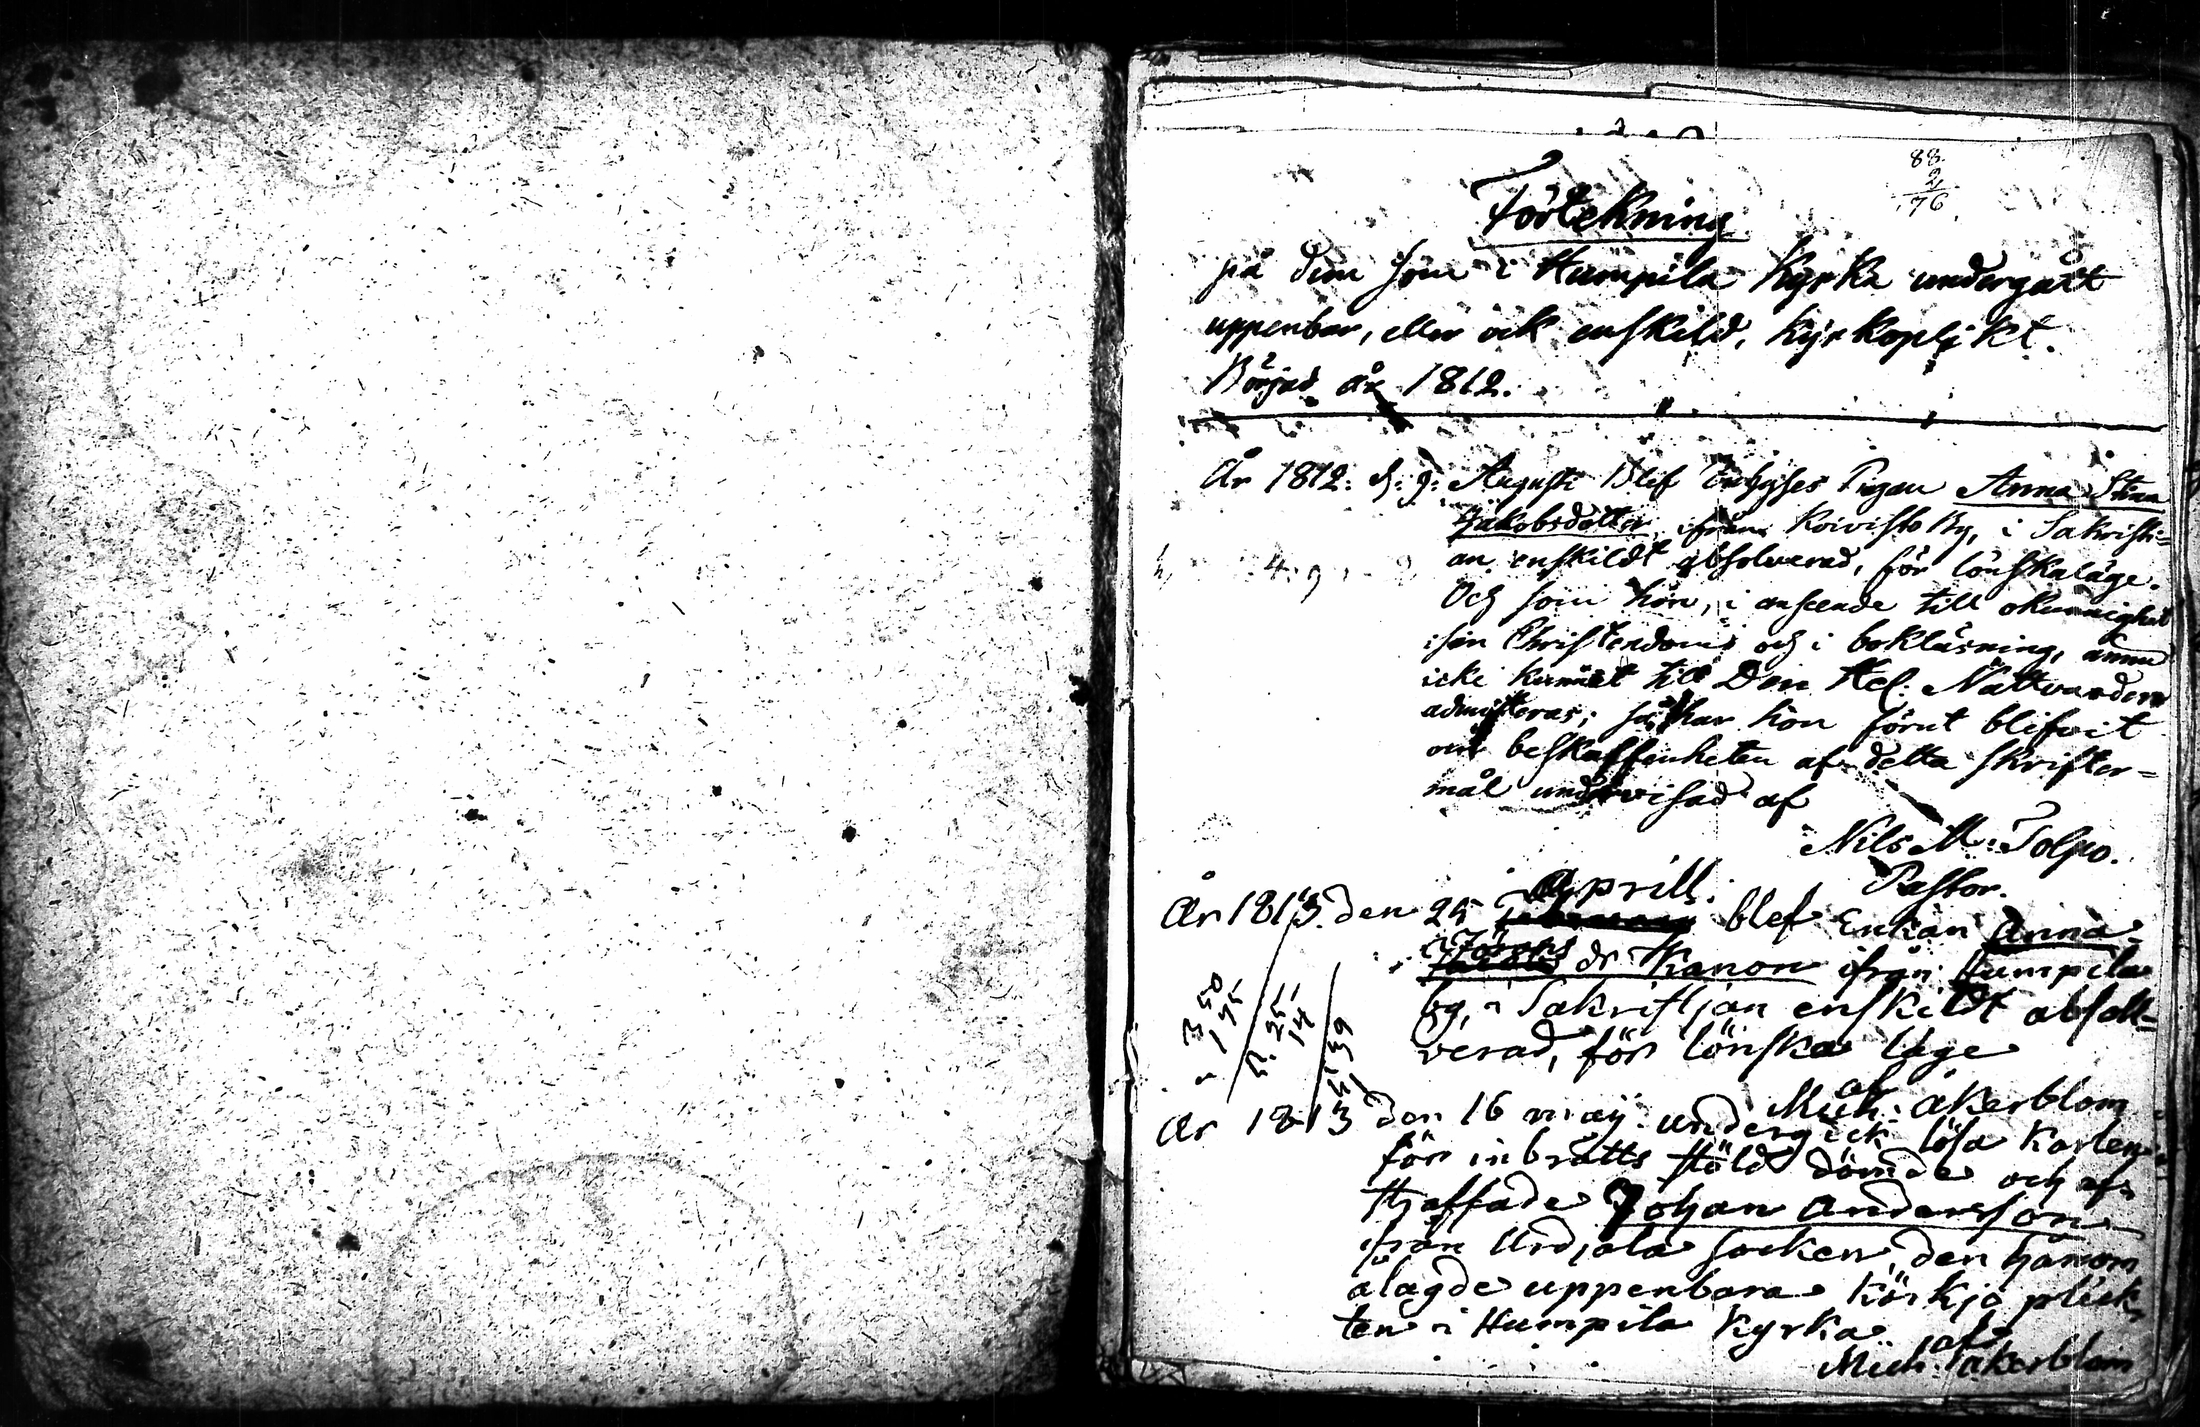 88.
2
76.
Förtekning
på dem som i Humpila Kyrka undergått
uppenbar, eller ock enskild, kyrkoplikt.
Börjad år 1812.
År 1812. d. 9. Augusti Blef Pigan Anna Stina
Jakobsdotter ifrån Koivisto By, i Sakristi=
an enskildt absolverad, för lönskaläge.
Och som hon, i anseende till okunnighet
i sin Christendom och i bokläsning, ännu
icke kunnat till Den Hel. Nattvarden
admitteras; så har hon förut blifvit
om beskaffenheten af detta skrifter=
mål undervisad af
Nils M. Tolpo.
Pastor.
Aprill.
År 1813. den 25 blef Enkan Anna
dr Kanon ifrån Humpila
by, i Sakristjan enskildt absoll=
verad, för lönska läge
af
Mich. Åkerblom
År 1813 den 16 may undergick lösa Karlen
för inbrotts stöld dömde och af=
straffade Johan Andersson
från Urdjala socken, den honom
ålagde uppenbara körkjo plick
ten i Humpila Kyrka
af
Mich. Åkerblom
350
175
25
14